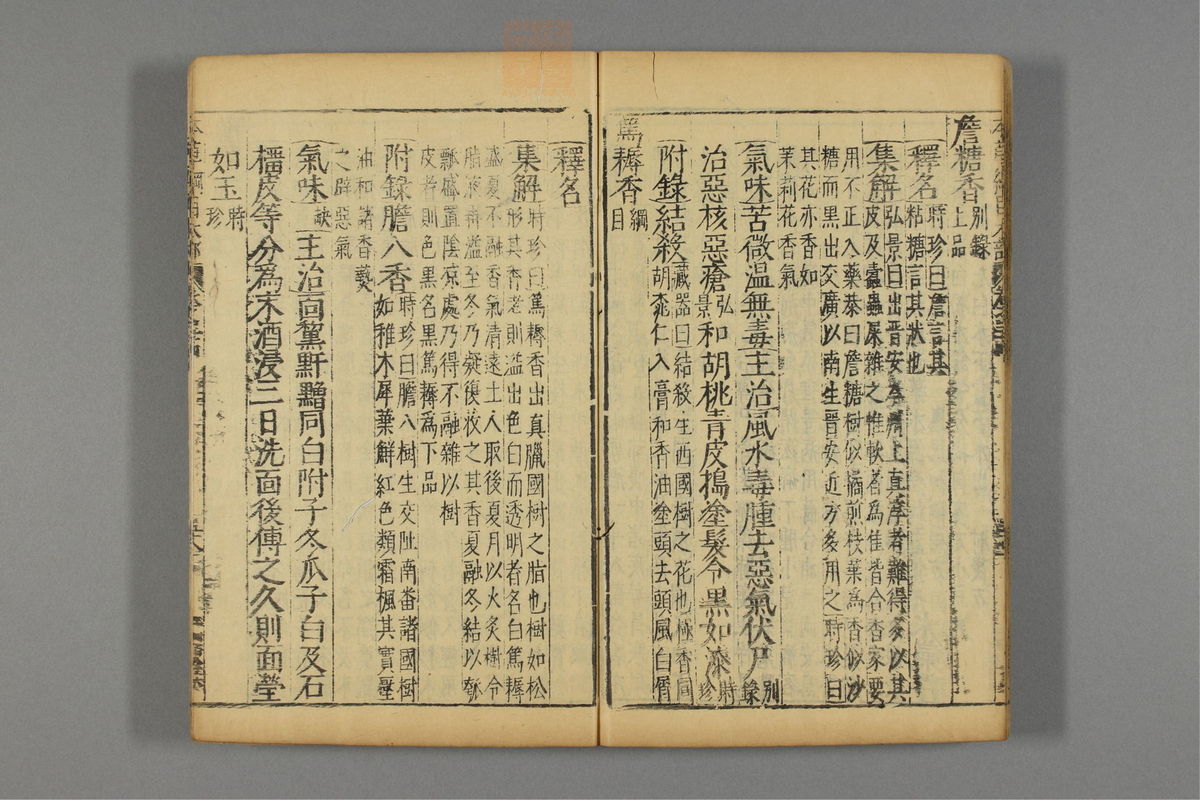 詹糖香別錄上品
釋名時珍曰詹言其粘糖言其狀也
集解弘景曰出晋安岑州上真淳者難得多以其皮及蠹蟲屎雜之惟軟者為佳皆合香家要用不正入藥恭曰詹糖樹似橘煎枝葉為香似沙糖而黑出交廣以南生晋安近方多用之時珍曰其花亦香如茉莉花香氣
氣味苦微温無毒主治風水毒腫去惡氣伏尸別錄
治惡核惡瘡弘景和胡桃青皮搗塗髮令黑如漆時珍
附錄結殺藏器曰結殺生西國樹之花也極香同胡桃仁入膏和香油塗頭去頭風白屑
篤耨香綱目
釋名
集解時珍曰篤耨香出真臘國樹之脂也樹如松形其香老則溢出色白而透明者名白篤耨盛夏不融香氣清遠土人取後夏月以火炙樹令脂液再溢至冬乃凝復收之其香夏融冬結以瓠瓢盛置陰凉處乃得不融雜以樹皮者則色黑名黑篤耨為下品
附錄膽八香時珍曰膽八樹生交趾南番諸國樹如稚木犀葉鮮紅色類霜楓其實壓油和諸香爇之辟惡氣
氣味缺主治面黧䵟䵴同白附子冬瓜子白及石
榴皮等分為末酒浸三日洗面後傅之久則面瑩
如玉時珍